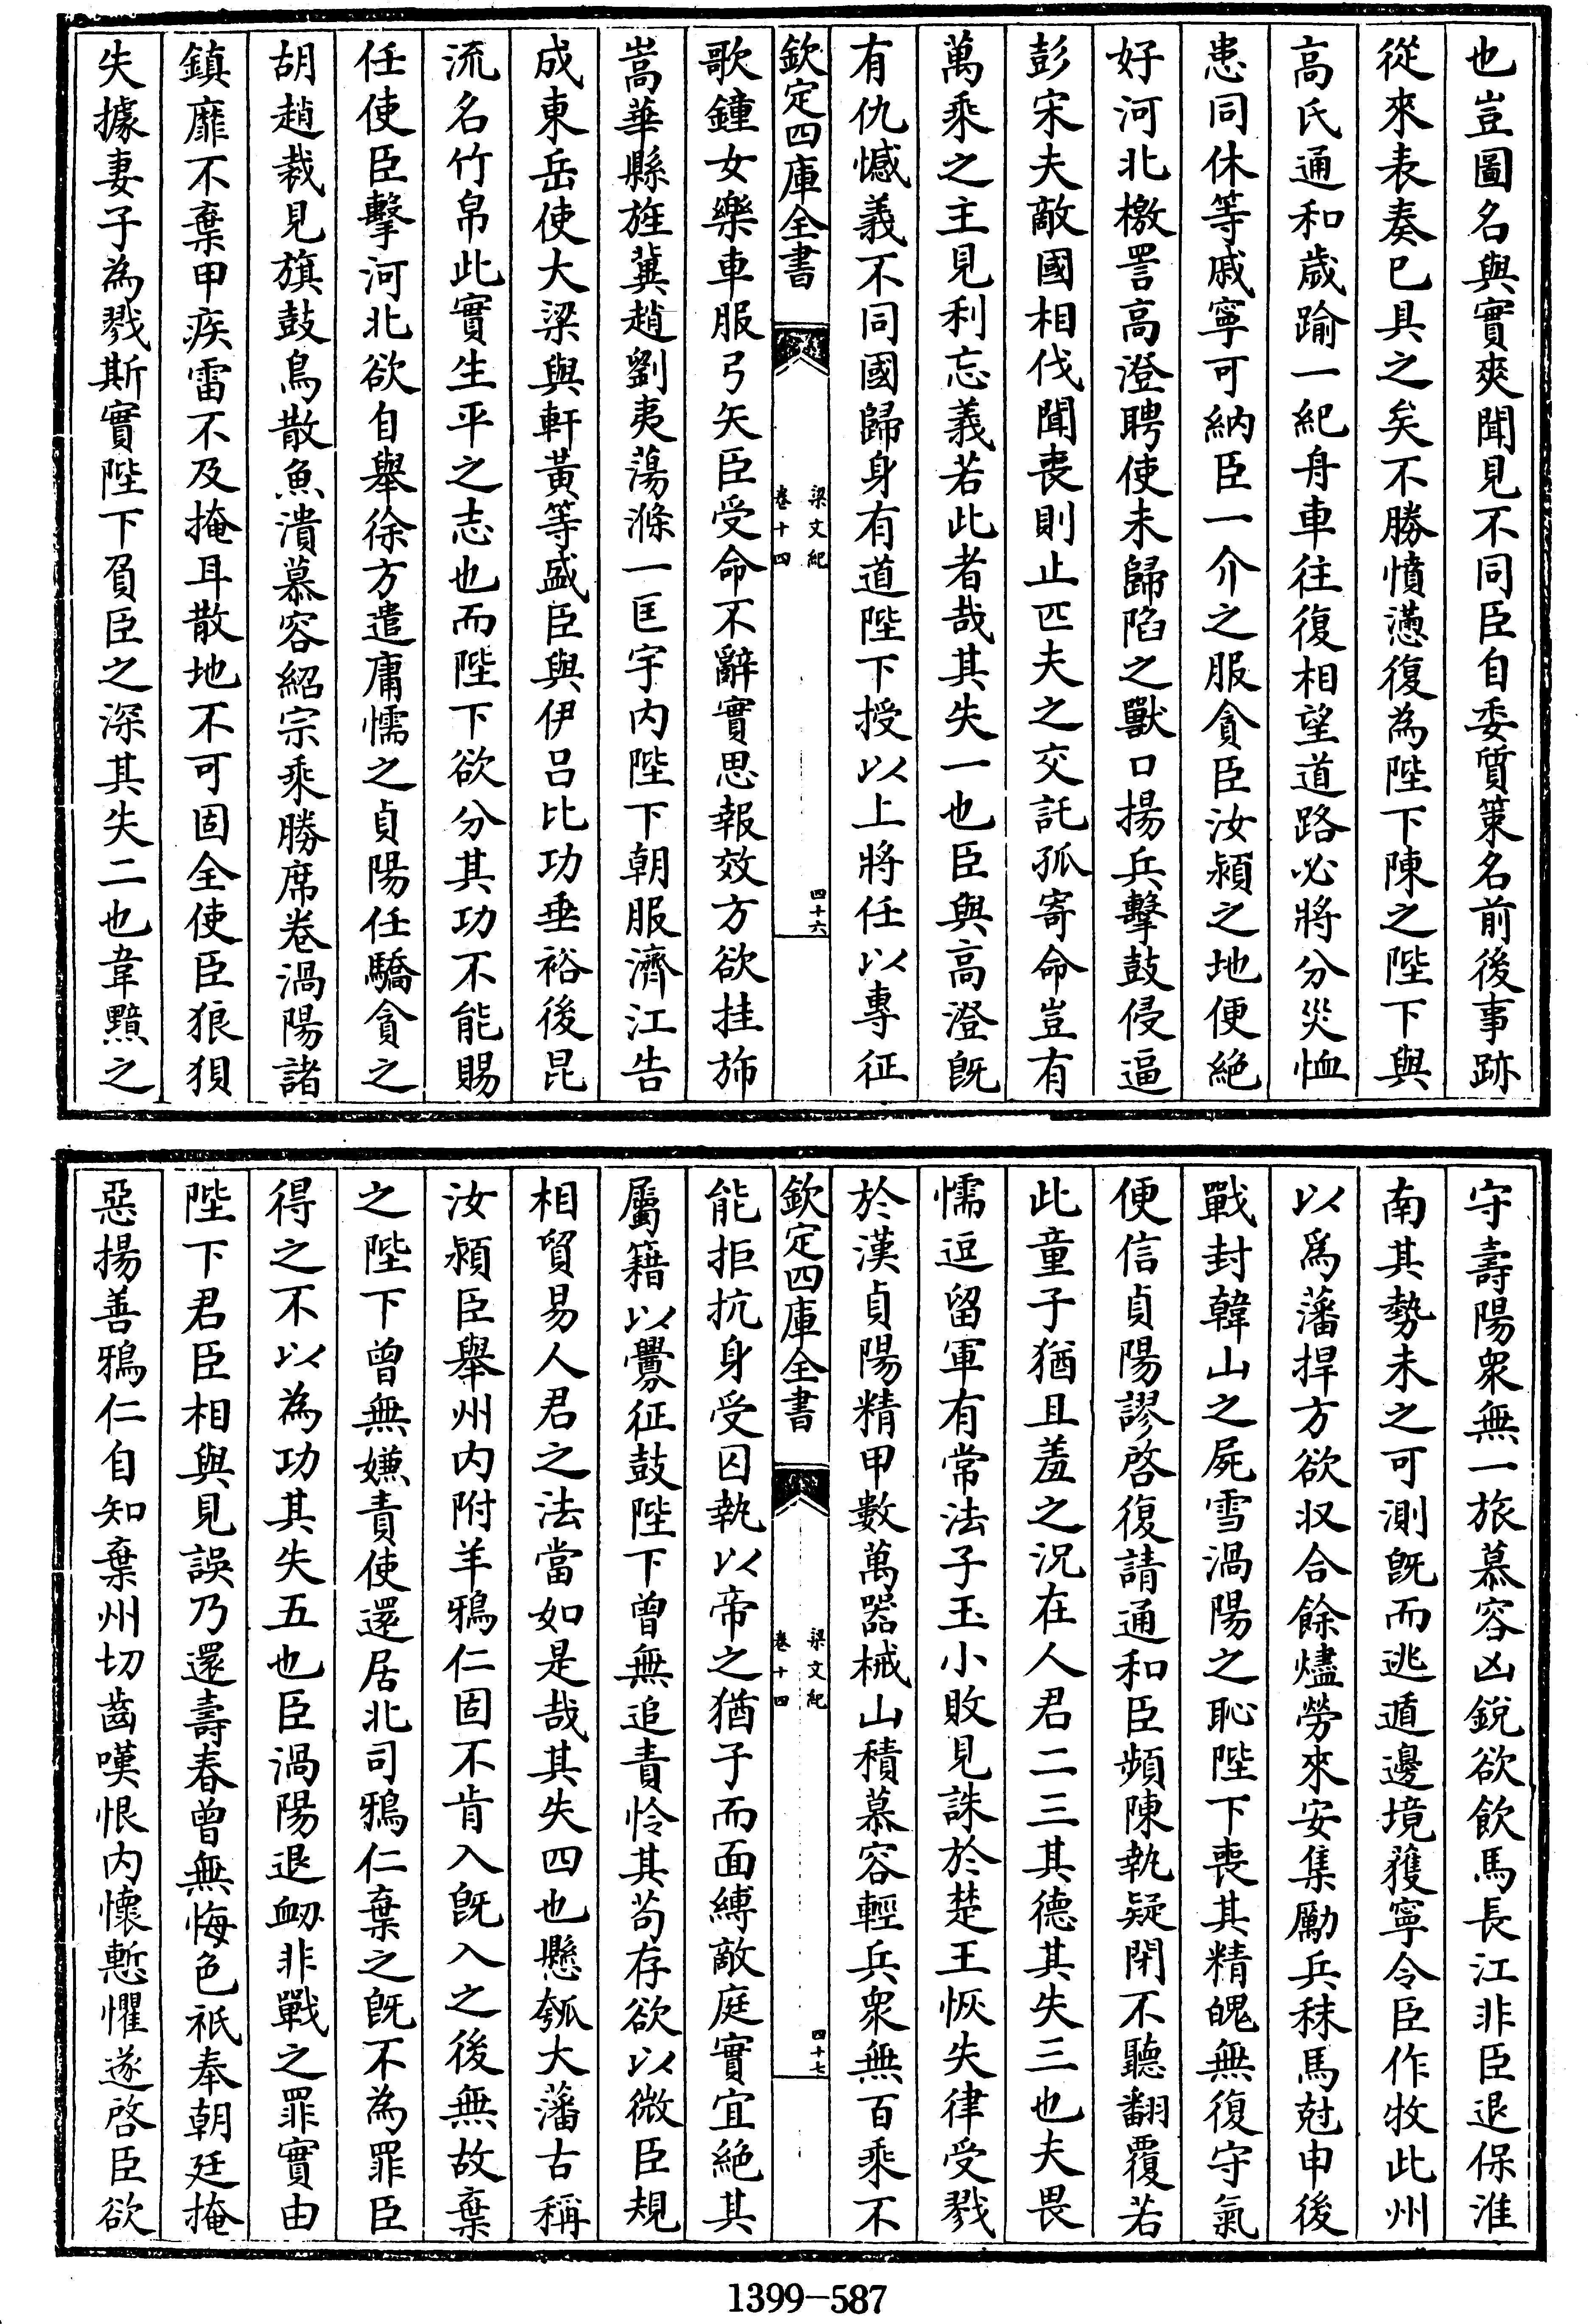 也豈圖名與實爽聞見不同臣自委質策名前後事跡
從來表奏已具之矣不勝憤懣復為陛下陳之陛下與
高氏通和歲踰一紀舟車往復相望道路必將分災恤
患同休等戚寧可納臣一介之服貪臣汝潁之地便絶
好河北檄詈高澄聘使未歸陷之獸口揚兵擊鼓侵逼
彭宋夫敵國相伐聞喪則止匹夫之交託孤寄命豈有
萬乘之主見利忘義若此者哉其失一也臣與高澄既
有仇憾義不同國歸身有道陛下授以上將任以專征
欽定四庫全書
梁文紀
卷十四
四十六
歌鐘女樂車服弓矢臣受命不辭實思報效方欲挂斾
嵩華縣旌冀趙劉夷蕩滌一匡宇内陛下朝服濟江告
成東岳使大梁與軒黄等盛臣與伊吕比功垂裕後昆
流名竹帛此實生平之志也而陛下欲分其功不能賜
任使臣擊河北欲自舉徐方遣庸懦之貞陽任驕貪之
胡趙裁見旗鼓鳥散魚潰慕容紹宗乘勝席卷渦陽諸
鎮靡不棄甲疾雷不及掩耳散地不可固全使臣狼狽
失據妻子為戮斯實陛下負臣之深其失二也韋黯之
守壽陽衆無一旅慕容凶銳欲飲馬長江非臣退保淮
南其勢未之可測既而逃遁邊境獲寧令臣作牧此州
以爲藩捍方欲収合餘燼勞來安集勵兵秣馬尅申後
戰封韓山之屍雪渦陽之恥陛下喪其精魄無復守氣
便信貞陽謬啓復請通和臣頻陳執疑閉不聽翻覆若
此童子猶且羞之況在人君二三其德其失三也夫畏
懦逗留軍有常法子玉小敗見誅於楚王恢失律受戮
於漢貞陽精甲數萬器械山積慕容輕兵衆無百乘不
欽定四庫全書
梁文紀
卷十四
四十七
能拒抗身受囚執以帝之猶子而面縛敵庭實宜絶其
屬籍以釁征鼓陛下曾無追責怜其苟存欲以微臣規
相貿易人君之法當如是哉其失四也懸瓠大藩古稱
汝潁臣舉州内附羊鴉仁固不肯入既入之後無故棄
之陛下曾無嫌責使還居北司鴉仁棄之既不為罪臣
得之不以為功其失五也臣渦陽退衂非戰之罪實由
陛下君臣相與見誤乃還壽春曾無悔色祇奉朝廷掩
惡揚善鴉仁自知棄州切齒嘆恨内懷慙懼遂啓臣欲
1399-587